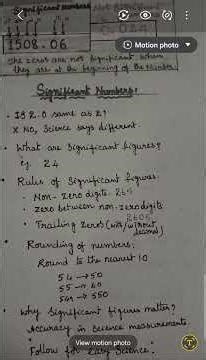 Significant numbers
Motion photo
1508.06
The zeros are not significant when
they are at the beginning of the number.
Significant Numbers:
• Is 2.0 same as 2?
X No, Science says different.
• What are Significant figures?
eg. 24
• Rules of Significant figures.
- Non-zero digits. 264
- Zero between non-zero digits
2606
- Trailing zeros (with/without
decimal)
• Rounding of numbers:
Round to the nearest 10
54 → 50
55 → 60
549 → 550
• Why Significant figures matter?
Accuracy in Science measurements
Follow for Easy Science.
View motion photo